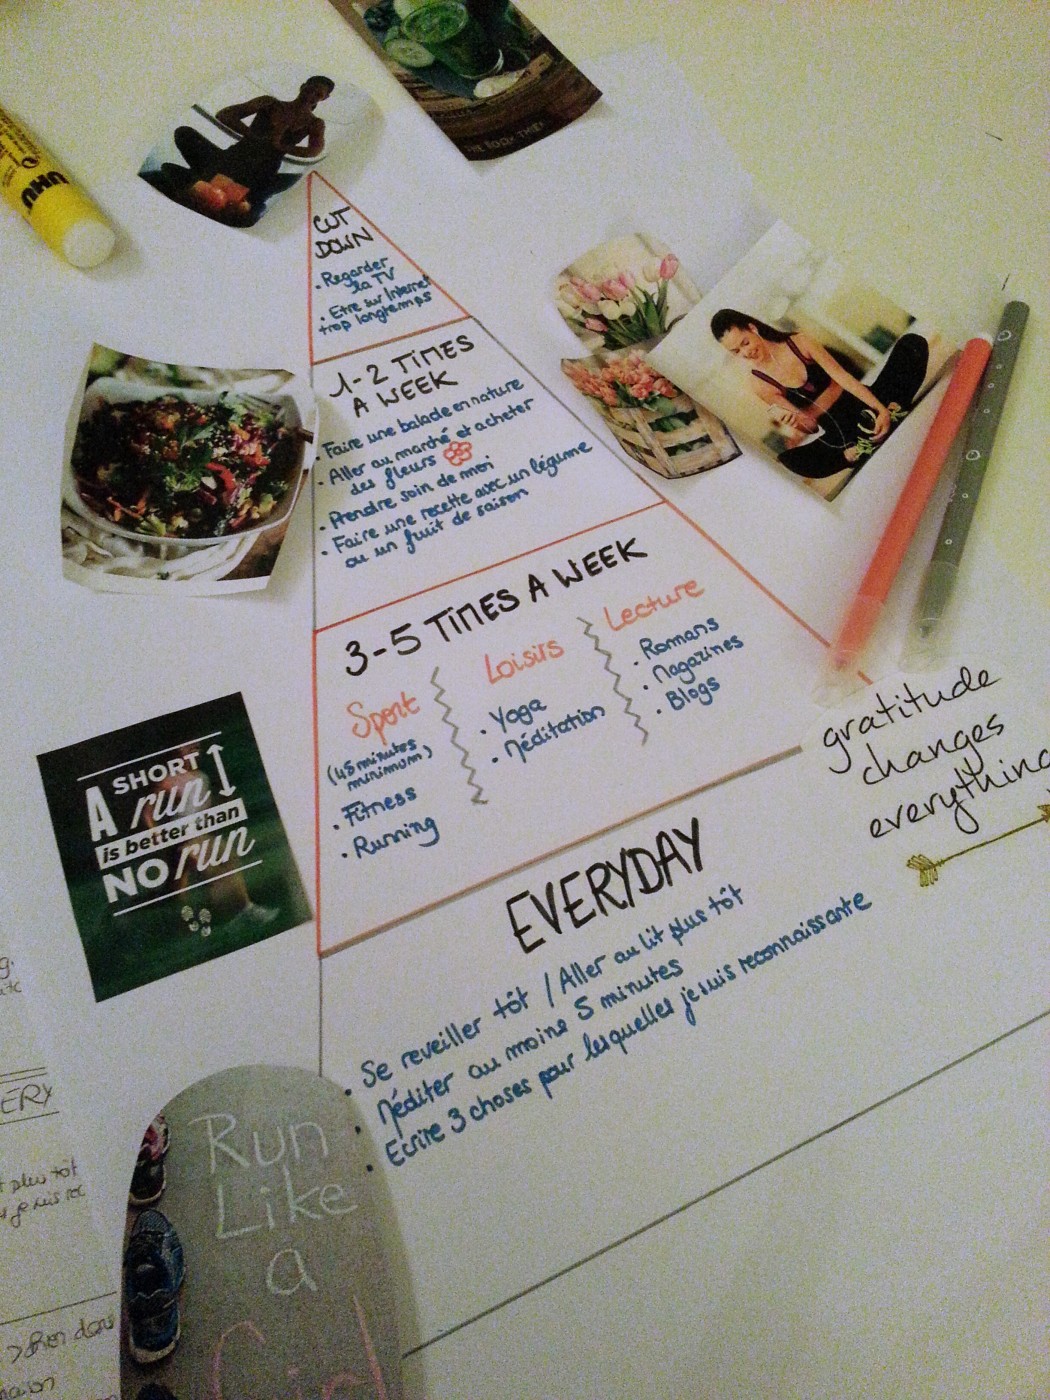 UHU
THE BOOK THIEF
CUT
DOWN
• Regarder
la TV
• Etre sur Internet
trop longtemps
1-2 TIMES
A WEEK
• Faire une balade en nature
• Aller au marché et acheter
des fleurs
• Prendre soin de moi
• Faire une recette avec un légume
ou un fruit de saison
3-5 TIMES A WEEK
Sport
(45 minutes
minimum)
• Fitness
• Running
Loisirs
• Yoga
• Méditation
Lecture
• Romans
• Magazines
• Blogs
A SHORT
run
is better than
NO run
gratitude
changes
everything
EVERYDAY
• Se reveiller tôt / Aller au lit plus tôt
• Méditer au moins 5 minutes
• Ecrire 3 choses pour lesquelles je suis reconnaissante
Run
Like
a
Girl
ERY
plus tôt
je suis rec